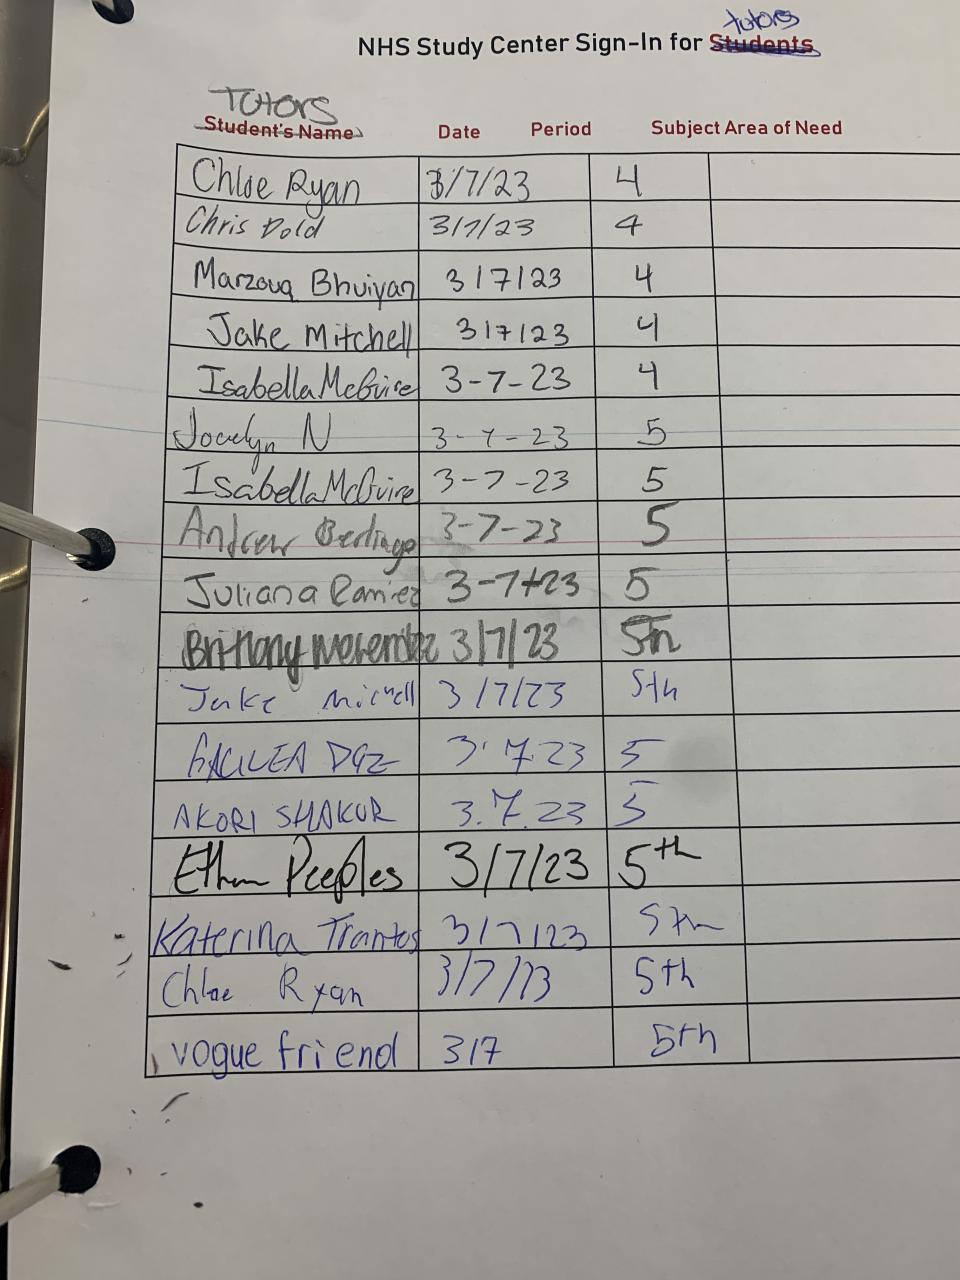 tutors
NHS Study Center Sign-In for Students
TUTORS
Student's Name Date Period Subject Area of Need
Chloe Ryan 3/7/23 4
Chris Dold 3/7/23 4
Marzouq Bhuiyan 3/7/23 4
Jake Mitchell 3/7/23 4
Isabella McGuire 3-7-23 4
Jocelyn N 3-7-23 5
Isabella McGuire 3-7-23 5
Andrew 3-7-23 5
Juliana Ramirez 3-7-23 5
Brittany 3/7/23 5th
Jake Michell 3/7/23 5th
3.7.23 5
AKORI SHAKUR 3.7.23 5
Ethan Peeples 3/7/23 5th
Katerina Trantos 3/7/23 5th
Chloe Ryan 3/7/23 5th
vogue friend 3/7 5th